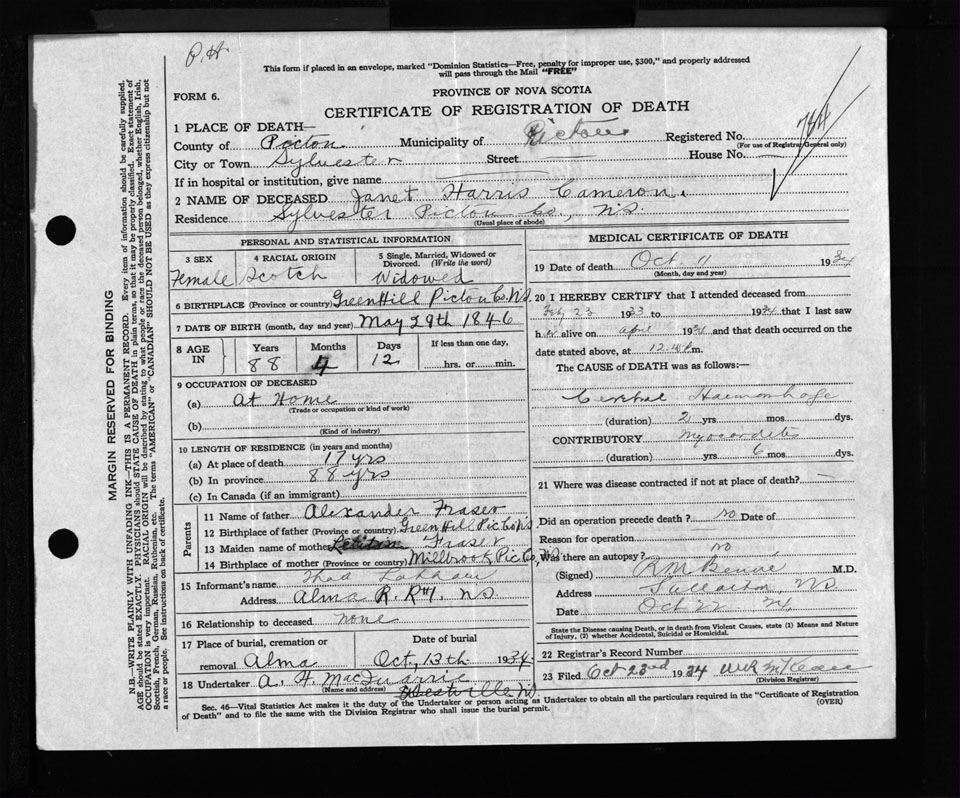 P.H
This form if placed in an envelope, marked "Dominion Statistics—Free, penalty for improper use, $300," and properly addressed
will pass through the Mail "FREE"
PROVINCE OF NOVA SCOTIA
FORM 6.
CERTIFICATE OF REGISTRATION OF DEATH
1 PLACE OF DEATH—
County of Pictou Municipality of Pictou Registered No. 764
(For use of Registrar General only)
City or Town Sylvester Street House No.
If in hospital or institution, give name
2 NAME OF DECEASED Janet Harris Cameron.
Residence Sylvester Pictou Co., N.S.
(Usual place of abode)
PERSONAL AND STATISTICAL INFORMATION
3 SEX 4 RACIAL ORIGIN 5 Single, Married, Widowed or
Divorced. (Write the word)
Female Scotch Widowed
6 BIRTHPLACE (Province or country) Green Hill Pictou Co N.S.
7 DATE OF BIRTH (month, day and year) May 29th 1846
8 AGE IN Years Months Days If less than one day,
88 4 12 hrs. or min.
9 OCCUPATION OF DECEASED
(a) At Home
(Trade or occupation or kind of work)
(b)
(Kind of industry)
10 LENGTH OF RESIDENCE (in years and months)
(a) At place of death 17 yrs
(b) In province 88 yrs
(c) In Canada (if an immigrant)
Parents
11 Name of father Alexander Fraser
12 Birthplace of father (Province or country) Green Hill Pic Co N.S
13 Maiden name of mother Fraser
14 Birthplace of mother (Province or country) Millbrook Pic Co, N.S
15 Informant's name Thad
Address Alma R.R#1. N.S
16 Relationship to deceased none
17 Place of burial, cremation or Date of burial
removal Alma Oct, 13th 1934
18 Undertaker A. H. MacQuarrie
(Name and address) Westville N.S.
MEDICAL CERTIFICATE OF DEATH
19 Date of death Oct 11 1934
(Month, day and year)
20 I HEREBY CERTIFY that I attended deceased from
Feb 23 1933 to 1934 that I last saw
her alive on april 1934 and that death occurred on the
date stated above, at 12.40 P.m.
The CAUSE OF DEATH was as follows:—
Cerebral Haemorrhage
(duration) 2 yrs. mos. dys.
CONTRIBUTORY Myocarditis
(duration) yrs. 6 mos. dys.
21 Where was disease contracted if not at place of death?
Did an operation precede death? no Date of
Reason for operation
Was there an autopsy? no
(Signed) M.D.
Address N.S
Date Oct 22 34
State the Disease causing Death, or in death from Violent Causes, state (1) Means and Nature
of Injury, (2) whether Accidental, Suicidal or Homicidal.
22 Registrar's Record Number
23 Filed Oct 23rd 1934
(Division Registrar)
Sec. 46—Vital Statistics Act makes it the duty of the Undertaker or person acting as Undertaker to obtain all the particulars required in the "Certificate of Registration
of Death" and to file the same with the Division Registrar who shall issue the burial permit. (OVER)
MARGIN RESERVED FOR BINDING
N.B.—WRITE PLAINLY WITH UNFADING INK—THIS IS A PERMANENT RECORD. Every item of information should be carefully supplied.
AGE should be stated EXACTLY. PHYSICIANS should STATE CAUSE OF DEATH in plain terms, so that it may be properly classified. Exact statement of
OCCUPATION is very important. RACIAL ORIGIN will be described by stating to what people or race the deceased person belonged, whether English, Irish,
Scottish, French, German, Russian, Ruthenian, etc. The terms "AMERICAN" or "CANADIAN" SHOULD NOT BE USED as they express citizenship but not
a race or people. See instructions on back of certificate.